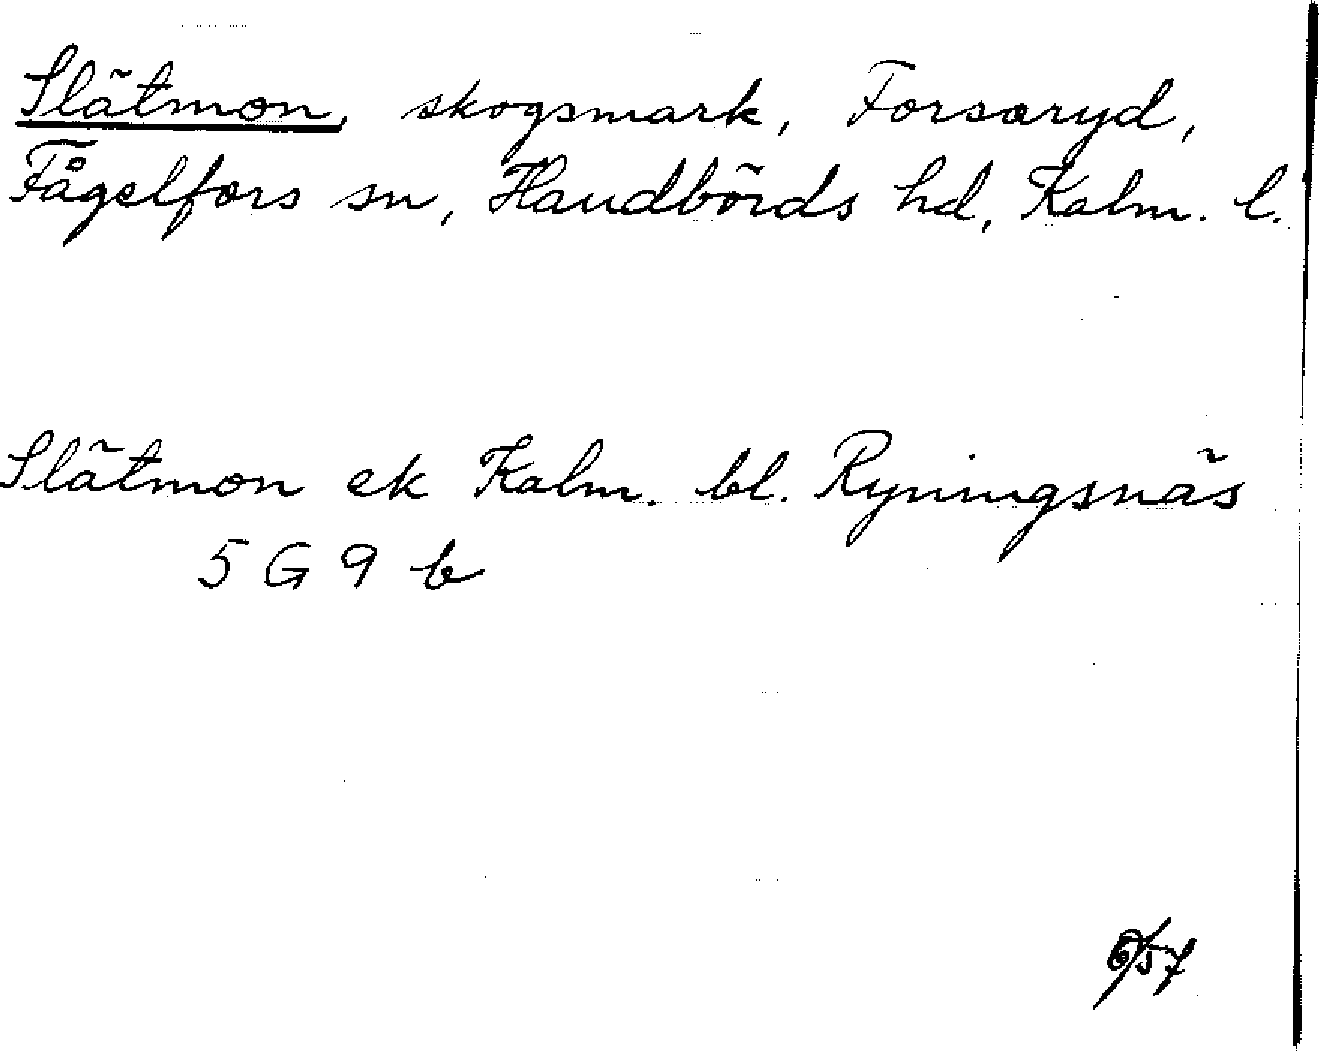 Slätmon, skogsmark, Forsaryd,
Fågelfors sn, Handbörds hd, Kalm. l.
Slätmon ek Kalm. bl. Ryningsnäs
5 G 9 b
6/57